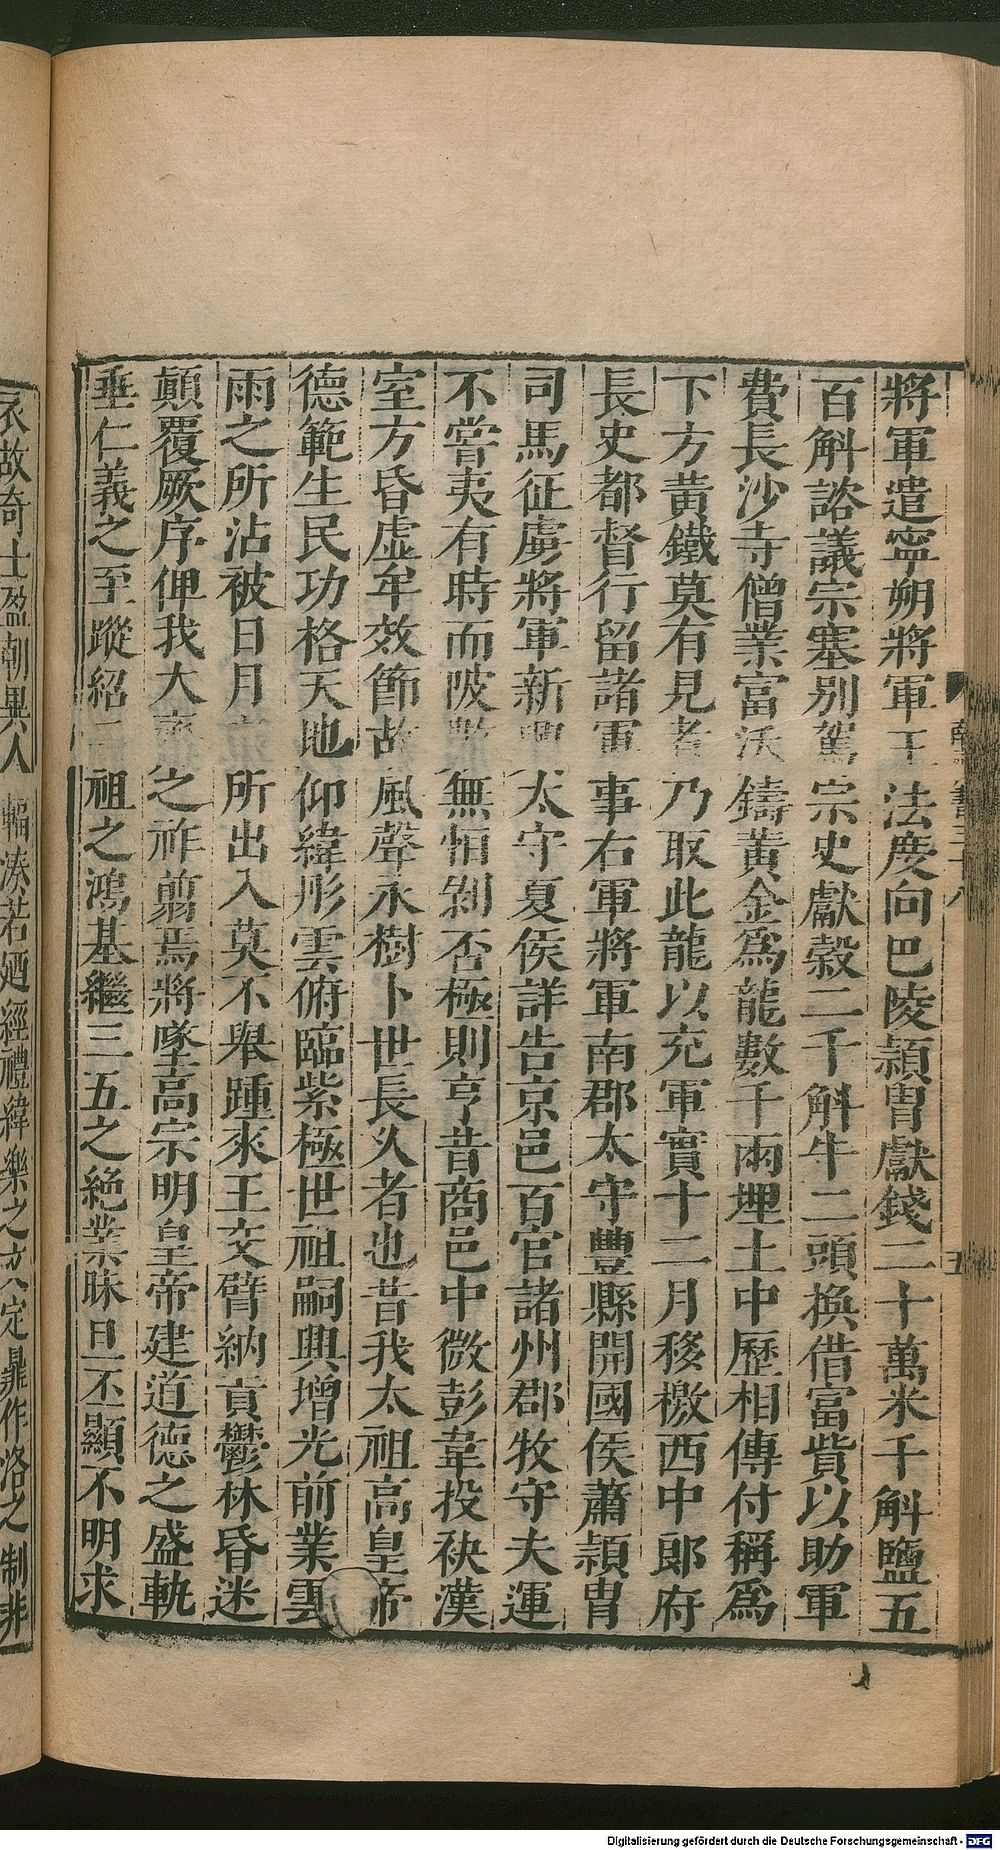 將軍遣寧朔將軍王法度向巴陵頴胄獻錢二十萬米千斛鹽五
百斛諮議宗塞別駕宗史獻穀二千斛牛二頭換借富貲以助軍
費長沙寺僧業富沃鑄黃金爲龍數千兩埋土中歷相傳付稱爲
下方黃鐵莫有見者乃取此龍以充軍實十二月移檄西中郎府
長史都督行留諸軍事右軍將軍南郡太守豐縣開國侯蕭頴胄
司馬征虜將軍新興太守夏侯詳告京邑百官諸州郡牧守夫運
不嘗夷有時而陂數無恒剝否極則亨昔商邑中微彭韋投袂漢
室方昏虛牟效節故風聲永樹卜世長久者也昔我太祖高皇帝
德範生民功格天地仰緯彤雲俯臨紫極世祖嗣興增光前業雲
雨之所沾被日月之所出入莫不舉踵來王交臂納貢鬱林昏迷
顛覆厥序俾我大齊之祚翦焉將墜高宗明皇帝建道德之盛軌
垂仁義之至蹤紹二祖之鴻基繼三五之絶業昧旦丕顯不明求
衣故奇士盈朝異人輻湊若廼經禮緯樂之文定鼎作洛之制非
五
Digitalisierung gefördert durch die Deutsche Forschungsgemeinschaft - DFG